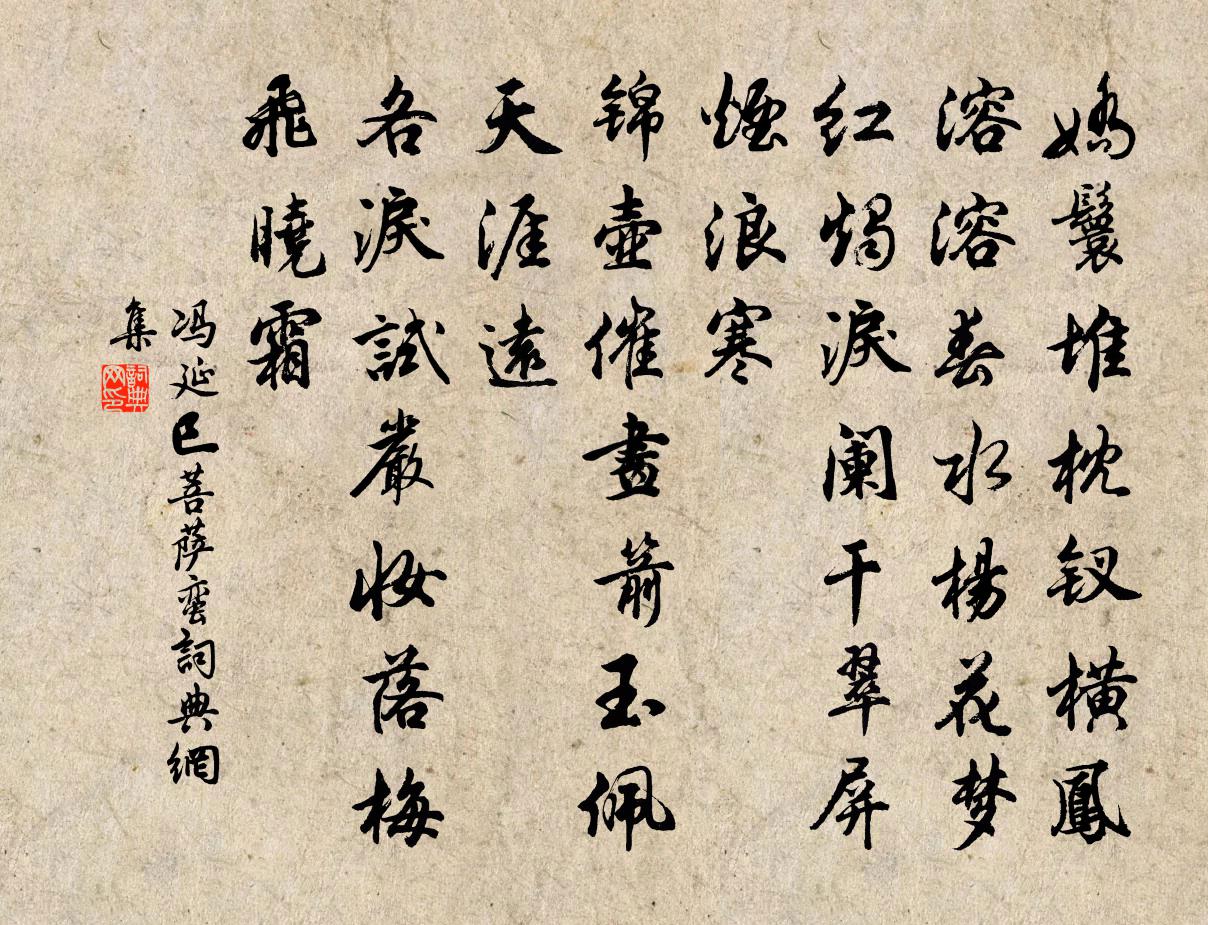 嬌鬟堆枕钗橫鳳
溶溶春水楊花梦
红燭淚阑干翠屏
煙浪寒
锦壺催畫箭玉佩
天涯遠
各淚試嚴妆落梅
飛曉霜
冯延巳菩萨蛮詞典網
集
詞典网印